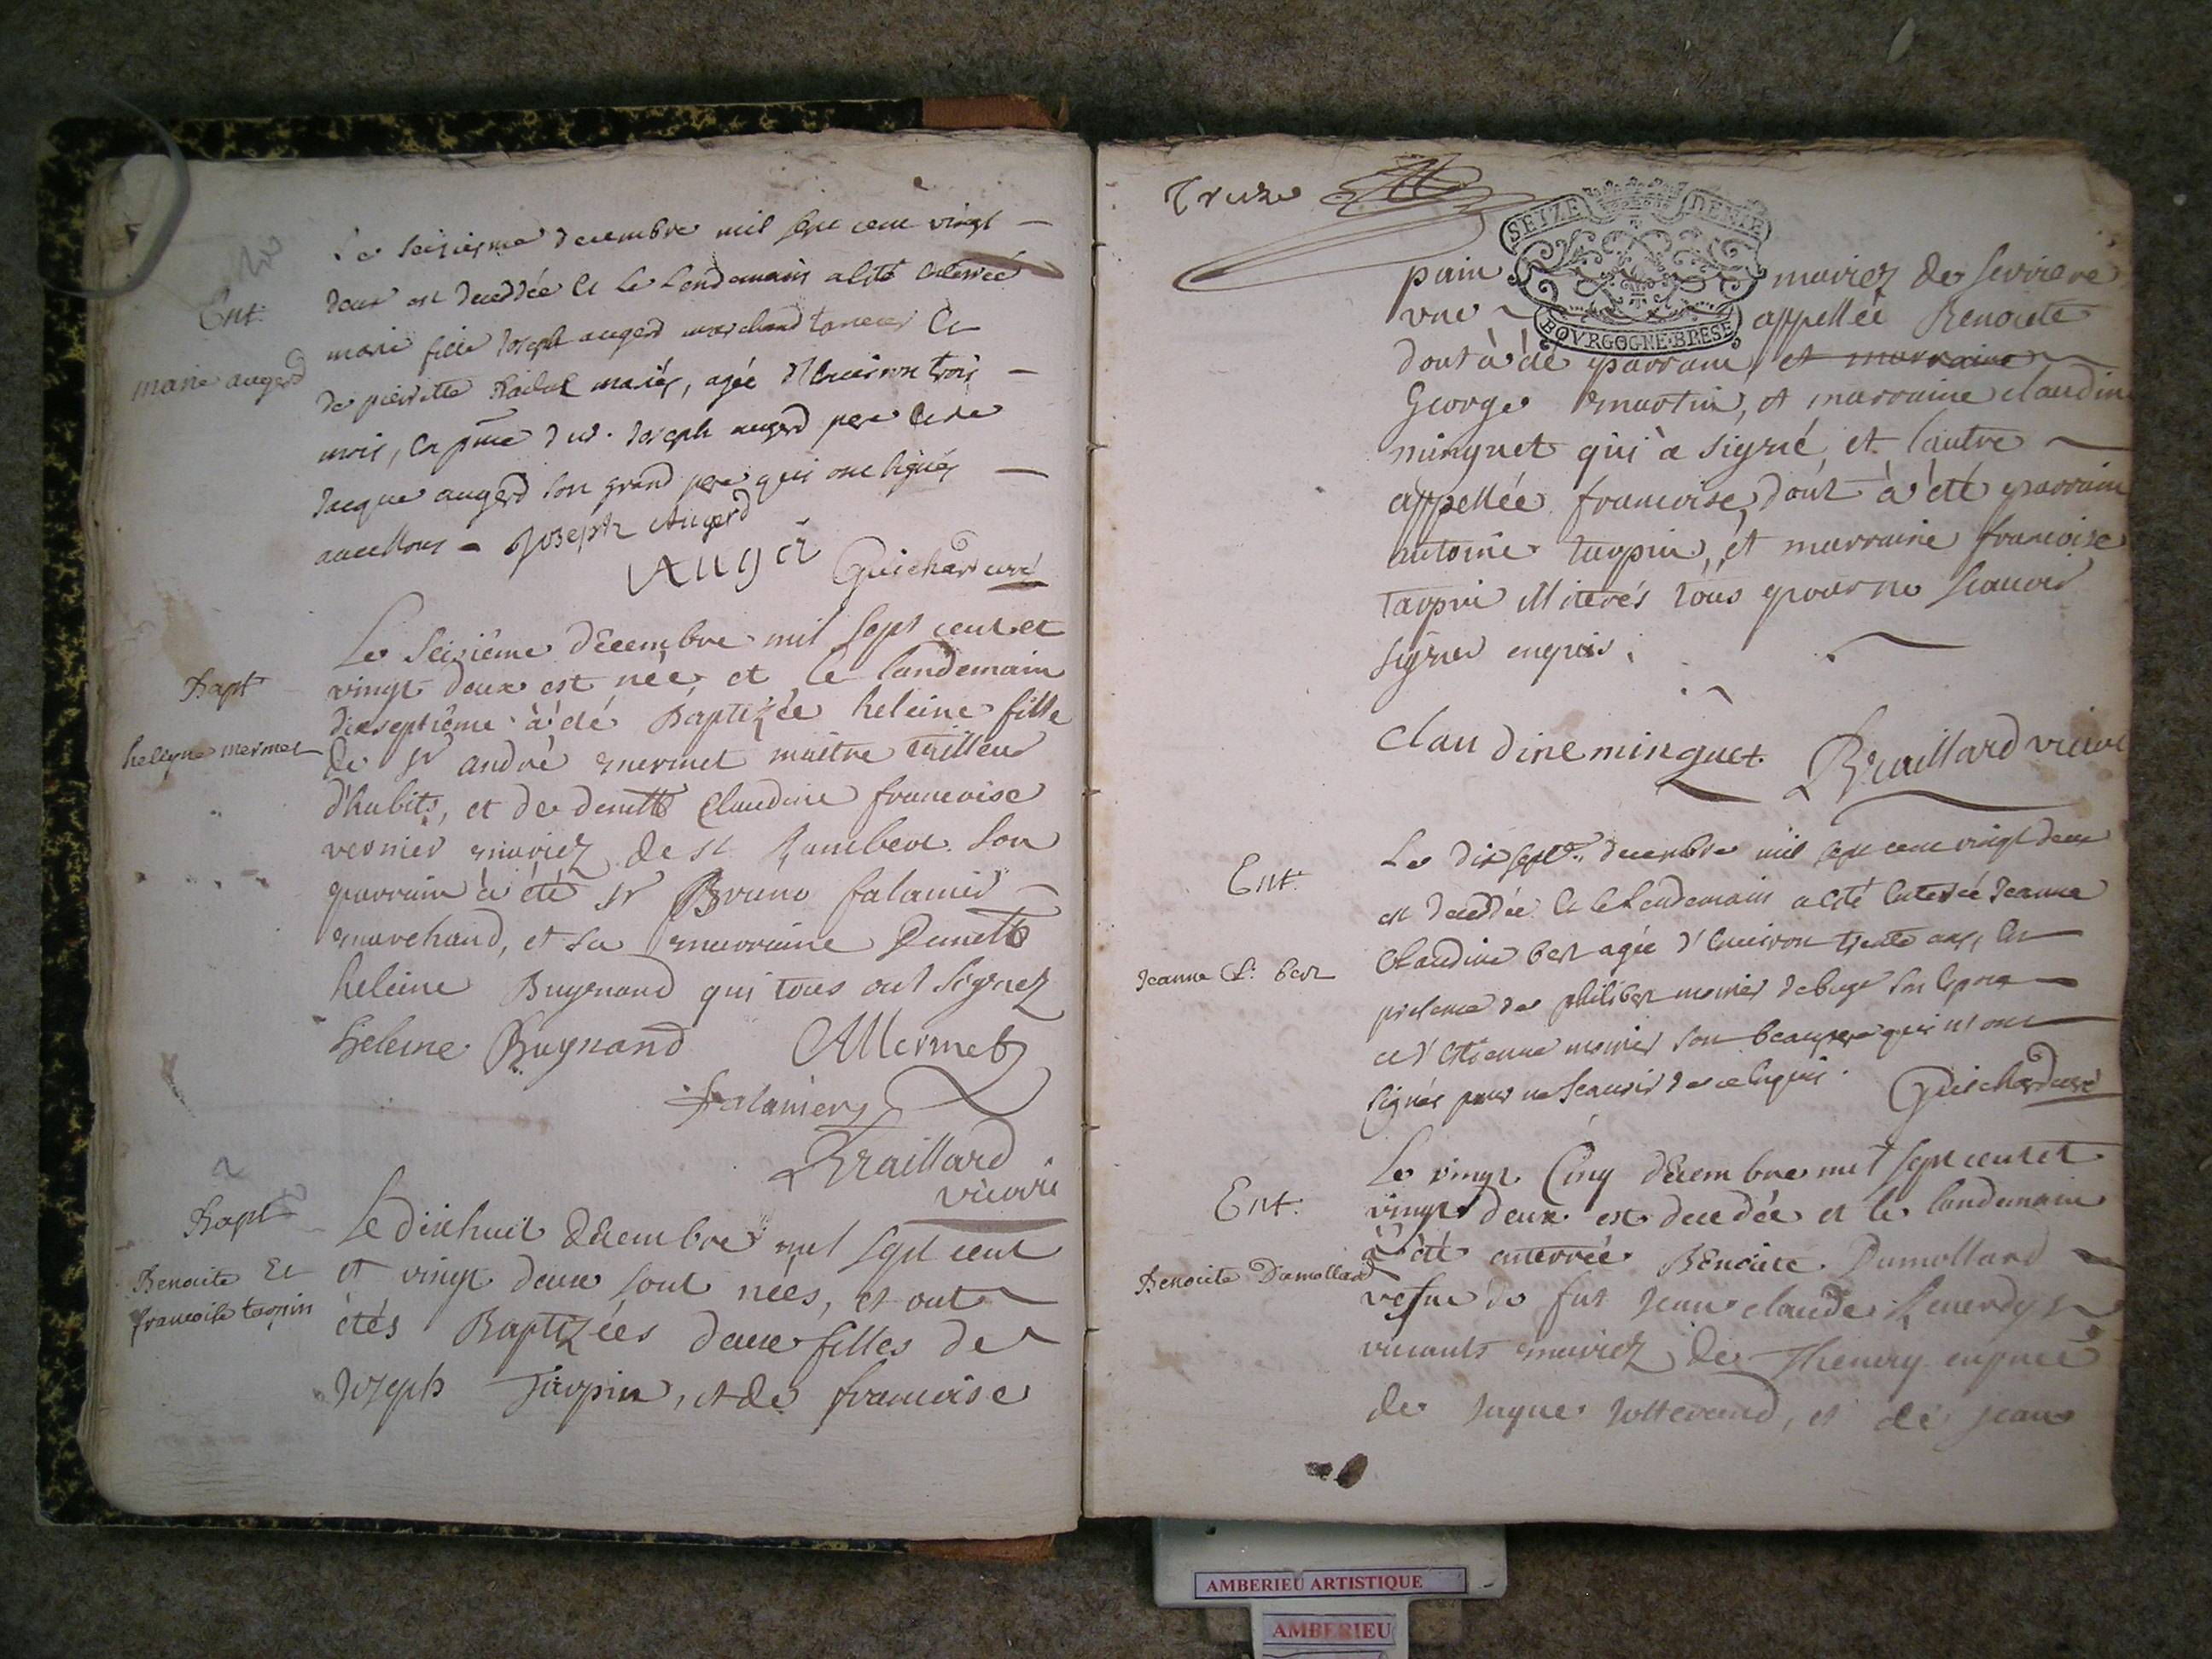 Ent.
marie augerd
Le seisiesme decembre mil sept cent vingt
deux est decedée et le lendemain a esté enterrée
marie fille Joseph augerd marchand taneur et
de pierrette mariés, agée d'environ trois
mois, en pnce dud. Joseph augerd pere et de
Jacque augerd son grand pere qui ont signés
avec nous Joseph Augerd
Guichard curé
Bapt
heleyne mermet
Le Seizième décembre mil sept cent et
vingt deux est née et le landemain
dixseptième à été Baptizée heleine fille
de sr andré mermet maitre tailleur
d'habits, et de demlle Claudine francoise
vernier mariez de st Rambert. Son
parrain à été sr Bruno falamier
marchand, et sa marraine Demlle
heleine Buynand qui tous ont signez
heleine Buynand Mermet
falamier
Braillard
vicaire
Bapt
Benoite Et
francoise taupin
Le dixhuit décembre mil sept cent
et vingt deux sont nées, et ont
étés Baptizées deux filles de
Joseph Taupin, et de francoise
Treize
SEIZE DENIE
BOVRGOGNE·BRESE
pain mariez de Serriere
une appellée Benoite
dont à été parrain et marraine
George martin, et marraine claudine
minguet qui à signé, et l'autre
appellée francoise, dont à été parrain
antoine taupin, et marraine francoise
taupin illiterés tous pour ne scavoir
signer enquis.
Claudine minguet. Braillard vicaire
Ent.
Jeanne Cl. bert
Le dix sept. decembre mil sept cent vingt deux
est decedée et le lendemain a esté enterrée Jeanne
Claudine bert agée d'environ trente ans, en
presence de philibert monier son
et d'Estienne monier son beaupere qui n'ont
signés pour ne scavoir de ce enquis. Guichard curé
Ent.
Benoite Dumollard
Le vingt Cinq décembre mil sept cent et
vingt deux est decedée et le landemain
à été enterrée Benoite Dumollard
vefve de fut Jean claude
vivants mariez de Thenay enpnce
de , et de jean